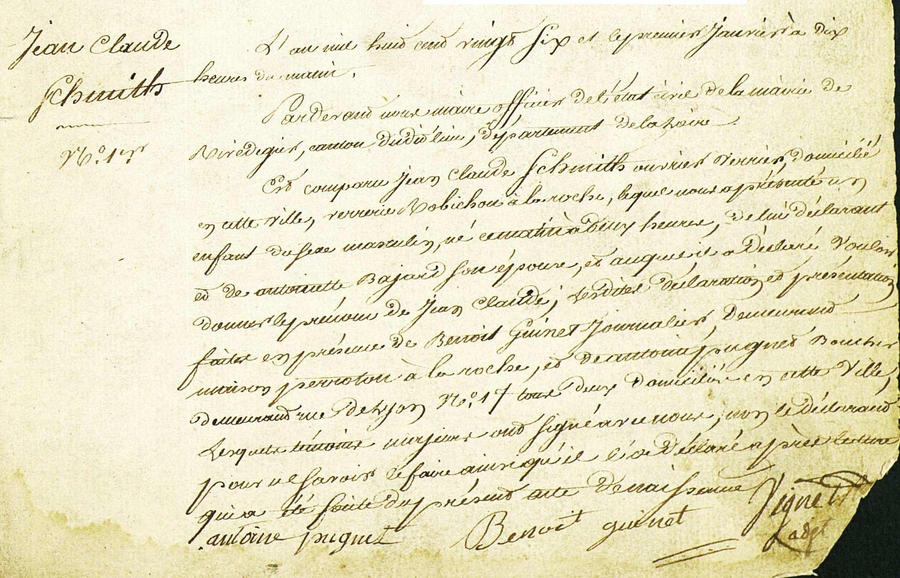 Jean Claude
Schmith
N.º 1er
L'an mil huit cent vingt six et le premier Janvier à dix
heures du matin.
Pardevant nous maire officier de l'état civil de la mairie de
Rivedegier, canton dudit lieu, département de la Loire.
Est comparu Jean Claude Schmith ouvrier verrier, domicilié
en cette ville, verrerie Robichon à la roche, lequel nous a présenté un
enfant du sexe masculin, né ce matin à deux heures, de lui déclarant
et de antoinette Bajard son épouse, et auquel il a déclaré vouloir
donner le prénom de Jean Claude; lesdites déclaration et présentation
faites en présence de Benoit Guinet Journalier, demeurant
maison perroton à la roche, et de antoine puguet Boucher
demeurant rue de Lyon N.º 17 tous deux domiciliés en cette ville,
Lesquels témoins majeurs ont signé avec nous, non le déclarant
pour ne savoir le faire ainsi qu'il l'a déclaré après lecture
qui a été faite du présent acte de naissance
antoine puguet Benoit guinet